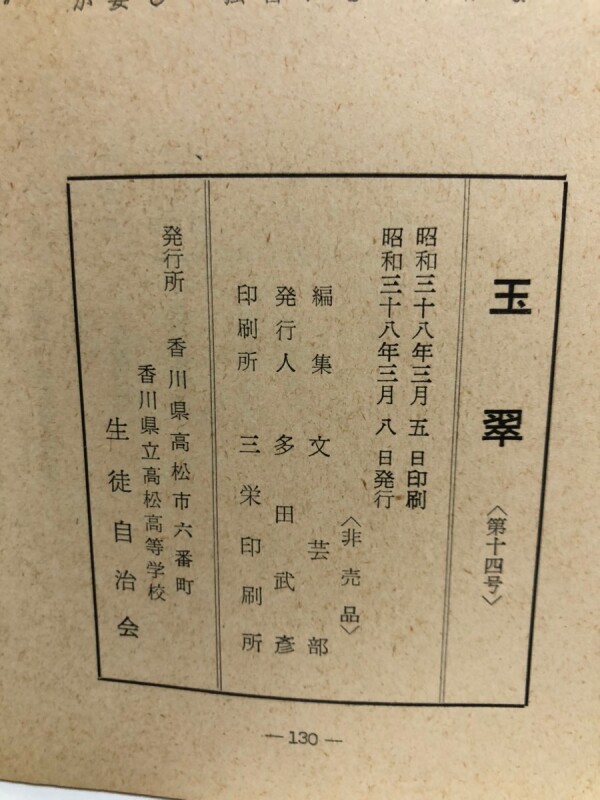 玉翠〈第十四号〉
昭和三十八年三月五日印刷
昭和三十八年三月八日発行
〈非売品〉
編集 文芸部
発行人 多田武彥
印刷所 三栄印刷所
発行所 香川県高松市六番町
香川県立高松高等学校
生徒自治会
—130—